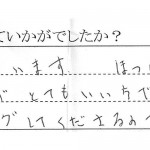 ていかがでしたか？
います　ほっ
とてもいいらで
グしてくださるの